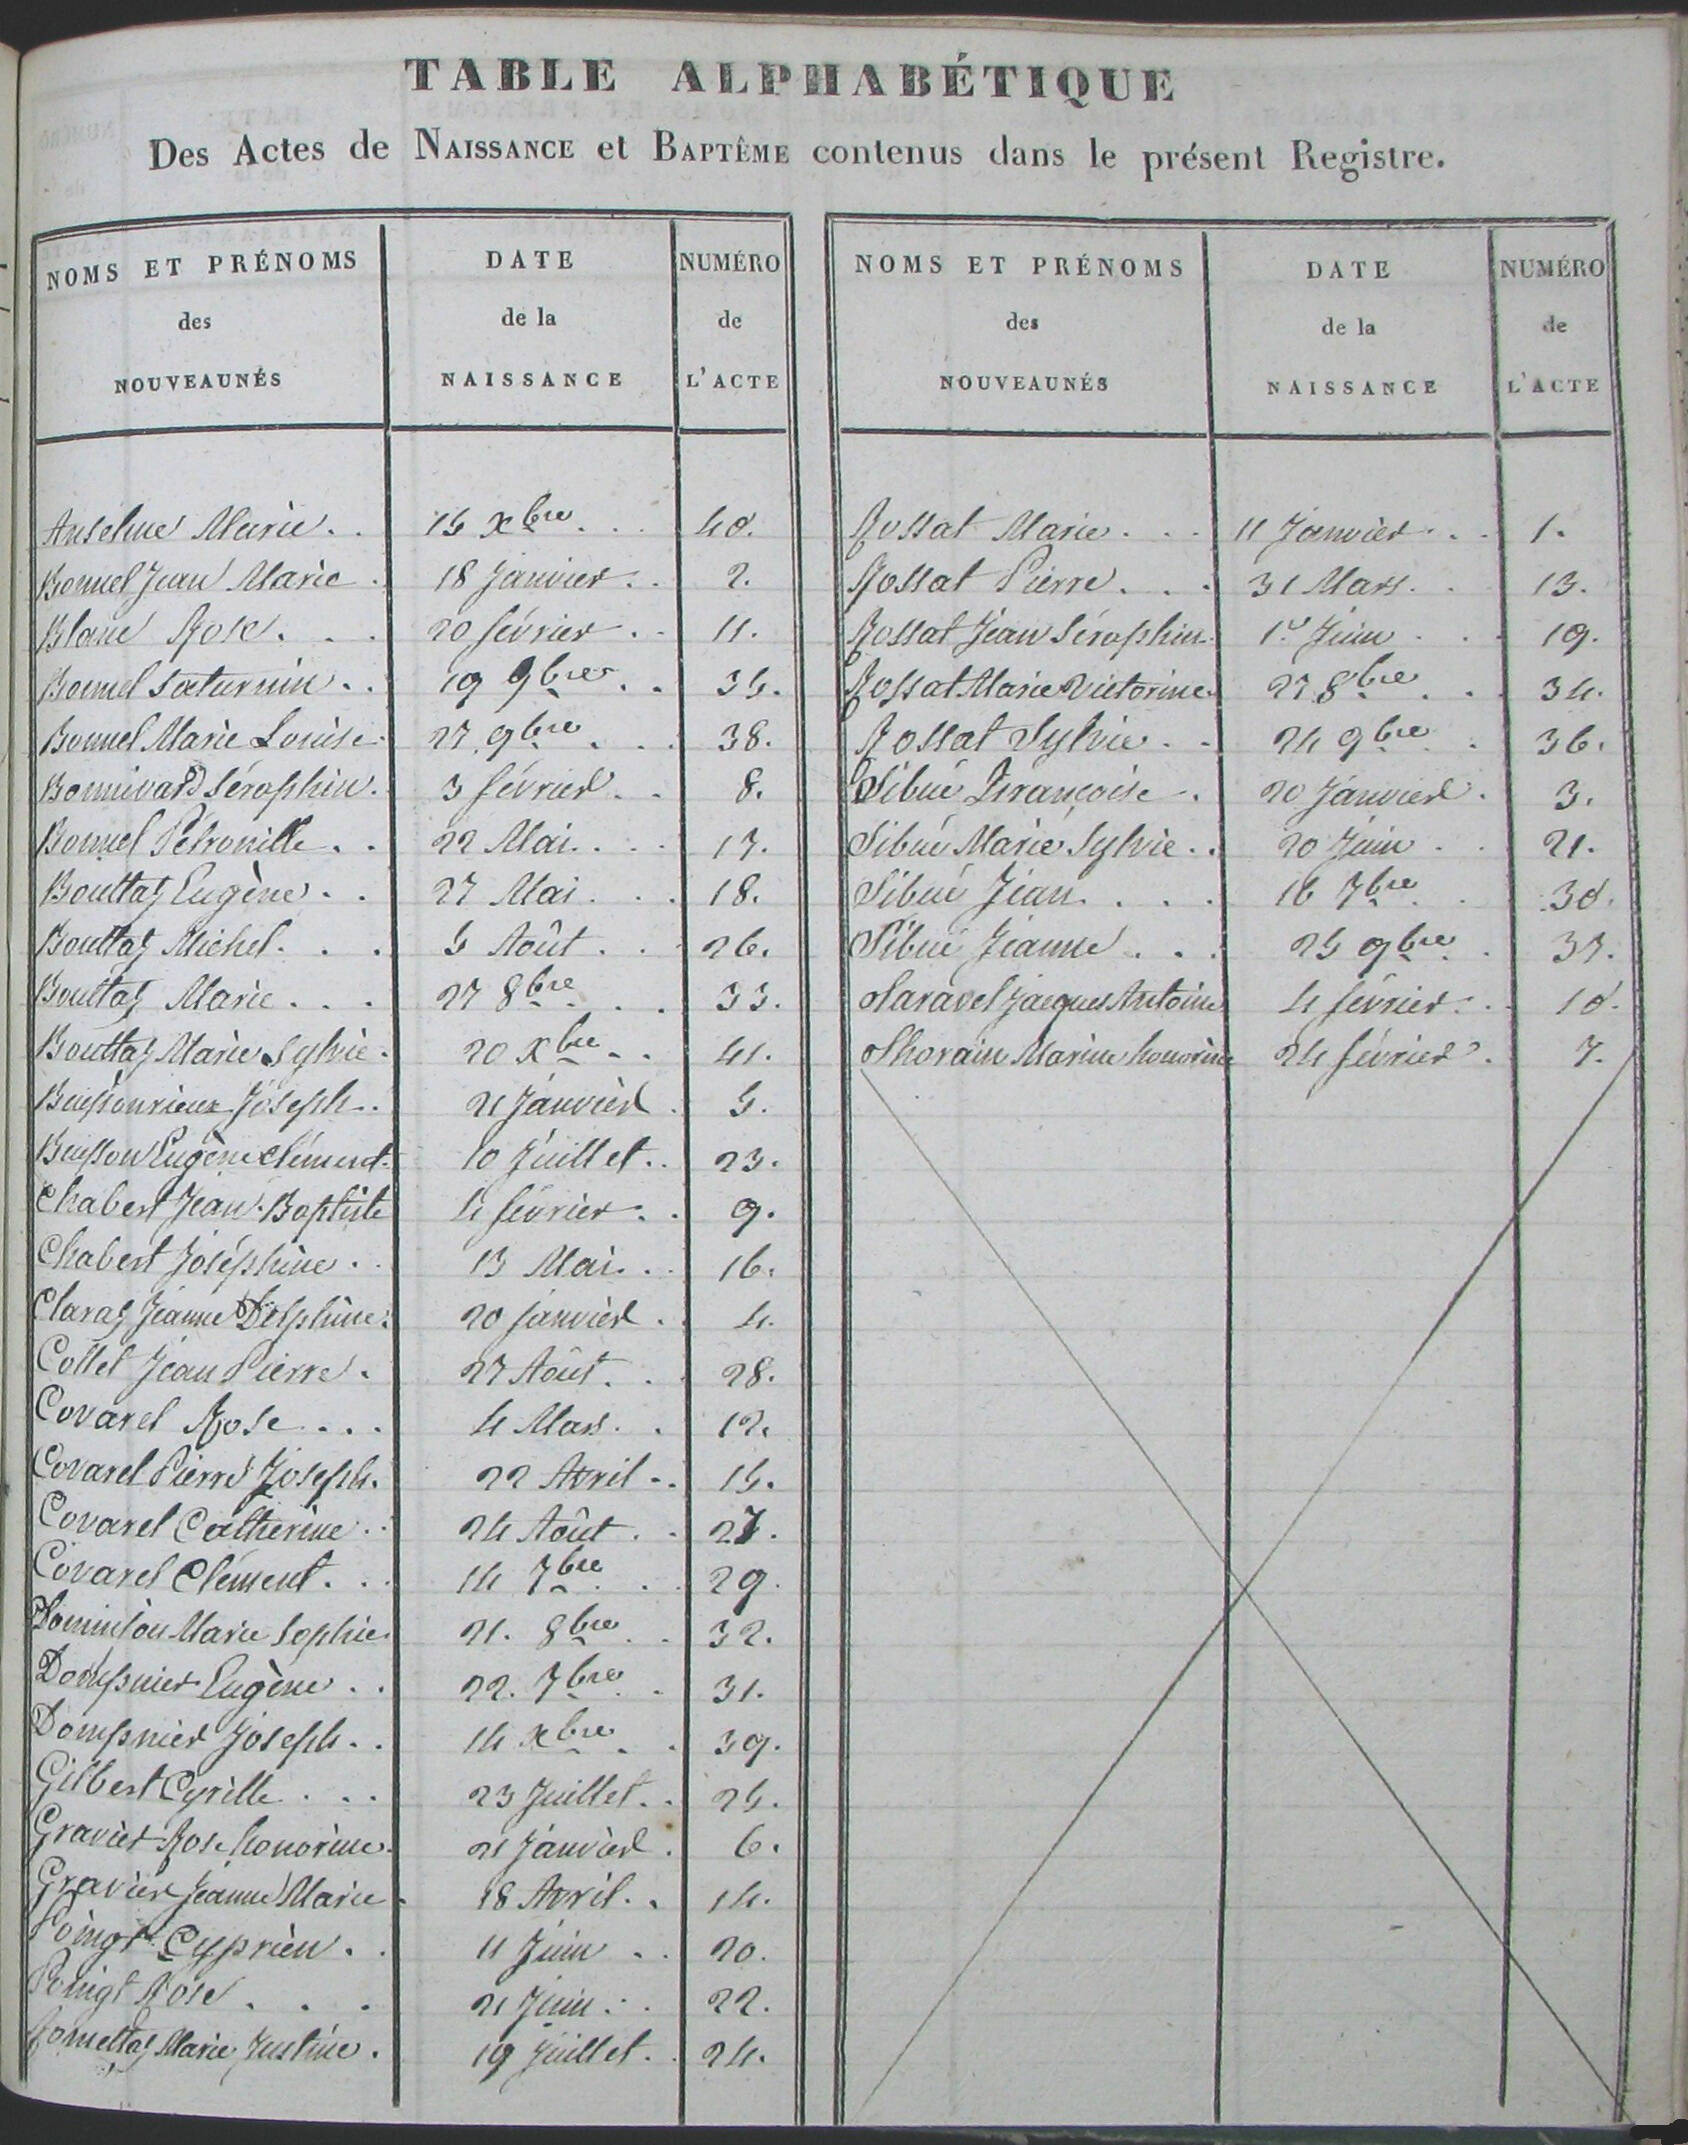 TABLE ALPHABÉTIQUE
Des Actes de NAISSANCE et BAPTÊME contenus dans le présent Registre.
NOMS ET PRÉNOMS des NOUVEAUNÉS | DATE de la NAISSANCE | NUMÉRO de L'ACTE
Anselme Marie . . 15 Xbre . . . 40.
Bonnel Jean Marie . 18 Janvier . . 2.
Blanc Rose . . . 20 février . . 11.
Bonnel Saturnin . . 19 9bre . . 35.
Bonnel Marie Louise . 27 9bre . . . 38.
Bonnivard Séraphin . 3 février . . 8.
Bonnel Pétronille . . 22 Mai . . . 17.
Bouttaz Eugène . . 27 Mai . . . 18.
Bouttaz Michel . . . 5 Août . . 26.
Bouttaz Marie . . . 27 8bre . . . 33.
Bouttaz Marie Sylvie . 20 Xbre . . 41.
Buissonrieux Joseph . . 21 Janvier . 5.
Buisson Eugène Clément . 10 Juillet . . 23.
Chabert Jean-Baptiste 4 février . . 9.
Chabert Joséphine . . 13 Mai . . . 16.
Claraz Jeanne Delphine . 20 janvier . . 4.
Collet Jean Pierre . 27 Août . . . 28.
Covarel Rose . . . 4 Mars . . 12.
Covarel Pierre Joseph . 22 Avril . . 15.
Covarel Catherine . . 24 Août . . 27.
Covarel Clément . . . 14 7bre . . . 29.
Marie Sophie . 21. 8bre . . 32.
Dompnier Eugène . . 22. 7bre . . 31.
Dompnier Joseph . . 14 Xbre . . 39.
Gilbert Cyrille . . . 23 Juillet . . 25.
Gravier Rose honorine . 21 Janvier . 6.
Gravier Jeanne Marie . 18 Avril . . 14.
Poingt Cyprien . . 11 Juin . . 20.
Poingt Rose . . . 21 Juin . . 22.
Marie Justine . 19 Juillet . . 24.
NOMS ET PRÉNOMS des NOUVEAUNÉS | DATE de la NAISSANCE | NUMÉRO de L'ACTE
Rossat Marie . . . 11 Janvier . . 1.
Rossat Pierre . . . 31 Mars . . 13.
Rossat Jean Séraphin . 1er Juin . . . 19.
Rossat Marie Victorine . 27 8bre . . 34.
Rossat Sylvie . . 24 9bre . . 36.
Sibué Françoise . 20 Janvier . 3.
Sibué Marie Sylvie . . 20 Juin . . 21.
Sibué Jean . . . . 16 7bre . . 30.
Sibué Jeanne . . . 25 9bre . . 37.
Taravel Jacques Antoine 4 février . . 10.
Thorain Marine honorine 24 février . 7.